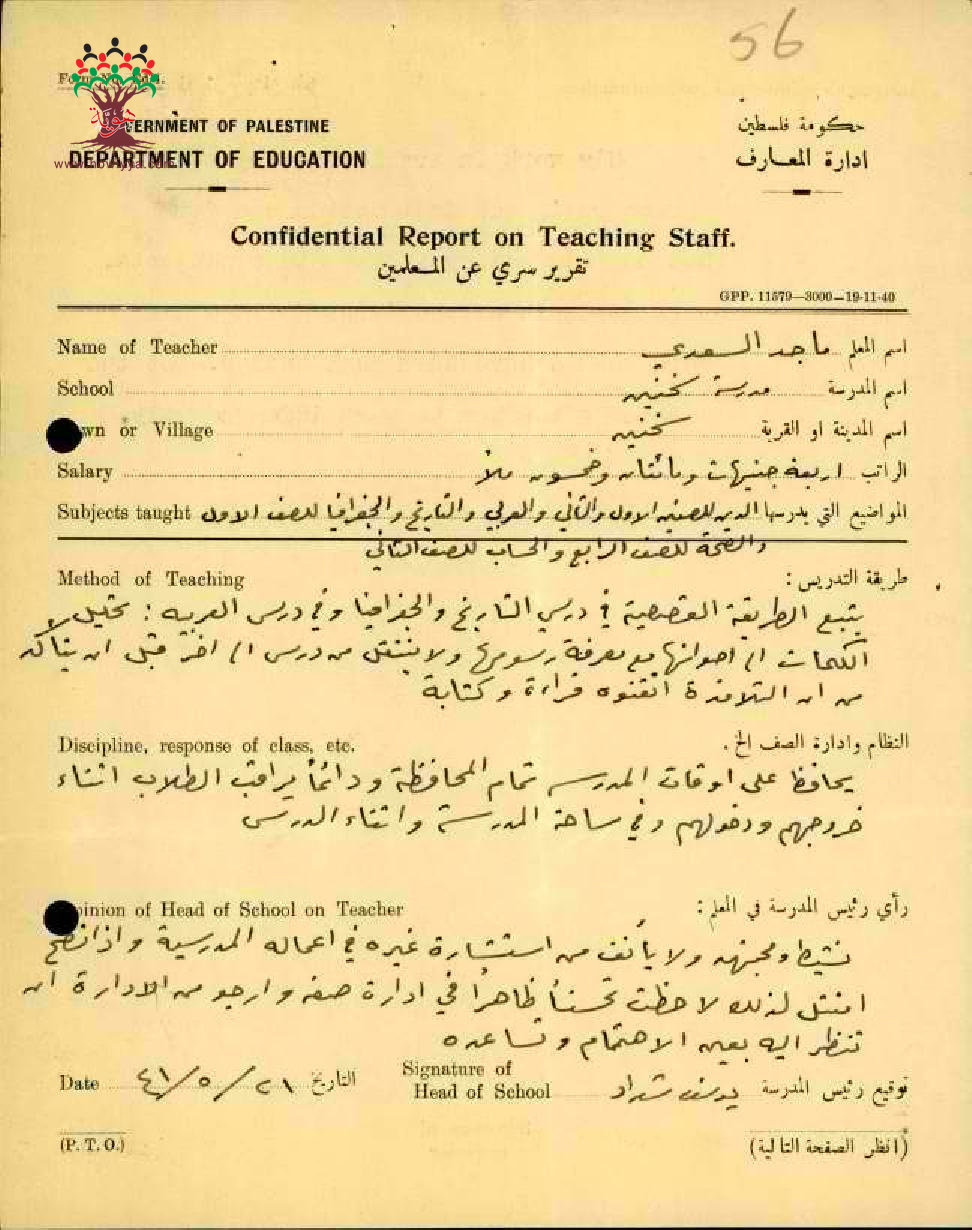 56
حكومة فلسطين
ادارة المعارف
ERNMENT OF PALESTINE
DEPARTMENT OF EDUCATION
Confidential Report on Teaching Staff.
تقرير سري عن المعلمين
GPP. 11579—3000—19-11-40
Name of Teacher ماجد السعدي اسم المعلم
School مدرسة سخنين اسم المدرسة
wn or Village سخنين اسم المدينة او القرية
Salary اربعة جنيهات ومائتان وخمسون ملاً الراتب
Subjects taught المواضيع التي يدرسها الدين للصفين الاول والثاني والعربي والتاريخ والجغرافيا للصف الاول
والصحة للصف الرابع والحساب للصف الثاني
Method of Teaching طريقة التدريس :
يتبع الطريقة القصصية في درسي التاريخ والجغرافيا وفي درس العربيه : تحليل
الكلمات الى اصواتها مع معرفة رسومها ولا ينتقل من درس الى اخر قبل ان يتأكد
من ان التلامذة اتقنوه قراءة وكتابة
Discipline, response of class, etc. النظام وادارة الصف الخ .
يحافظ على اوقات المدرسه تمام المحافظة ودائماً يراقب الطلاب اثناء
خروجهم ودخولهم وفي ساحة المدرسة واثناء الدرس
pinion of Head of School on Teacher رأي رئيس المدرسة في المعلم :
نشيط ومجتهد ولا يأنف من استشارة غيره في اعماله المدرسية واذا نصح
امتثل لذلك لاحظت تحسناً ظاهراً في ادارة صفه وارجو من الادارة ان
تنظر اليه بعين الاهتمام وتساعده
Date ٢١/٥/٤١ التاريخ
Signature of
Head of School يوسف شداد توقيع رئيس المدرسة
(P. T. O.) (انظر الصفحة التالية)